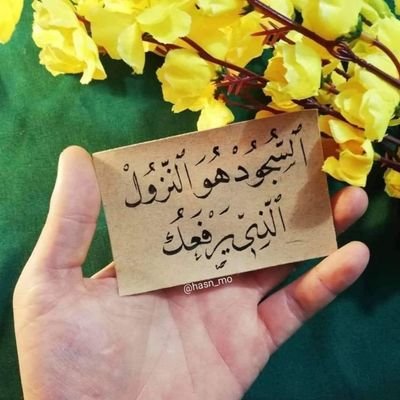 ٱلسُّجُودْ هُوَ ٱلنّزُولْ
ٱلّذِيۡ يَرْفَعُك
@hasn_mo